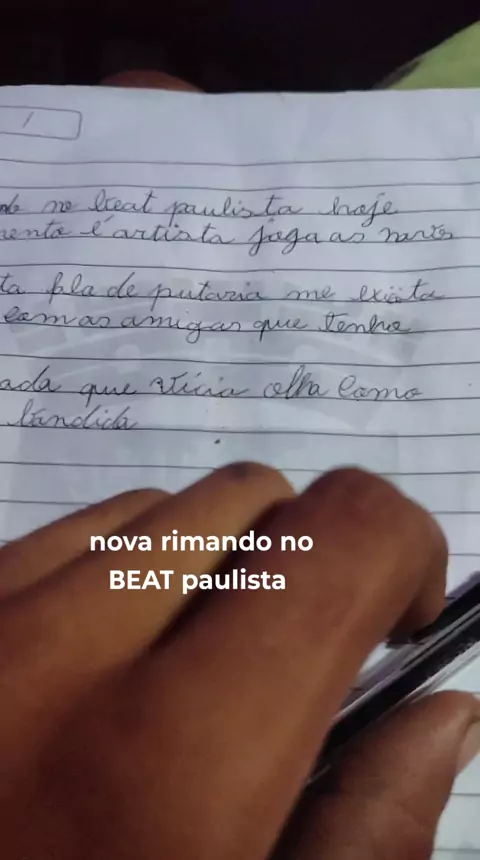 no beat paulista hoje
mento é artista joga as naves
ta fla de putaria me exita
com as amigas que tenho
ada que vicia olha como
bandida
nova rimando no
BEAT paulista